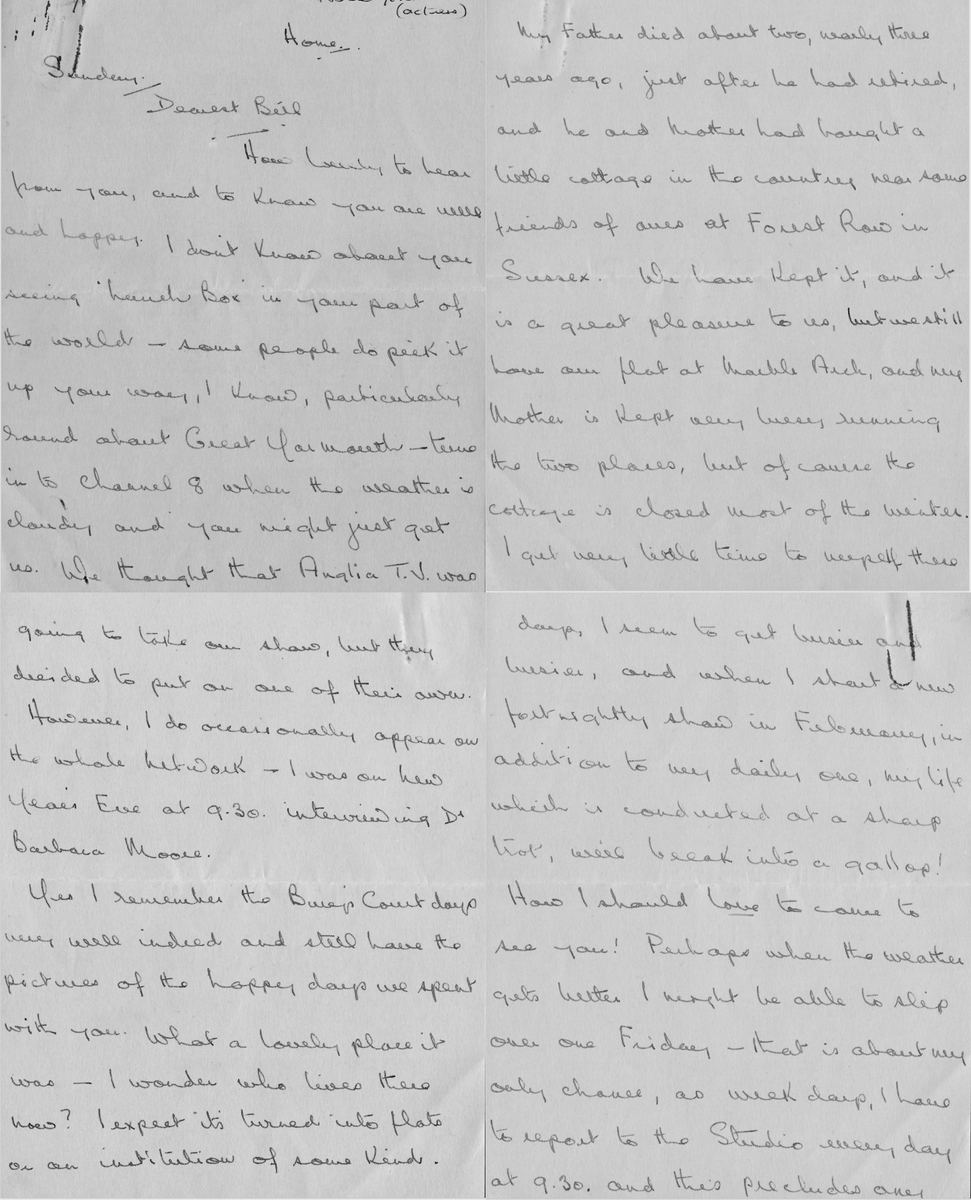 (actress)
Home.
Sunday.
Dearest Bill
How lovely to hear
from you, and to know you are well
and happy. I don't know about you
seeing 'Lunch Box' in your part of
the world - some people do pick it
up your way, I know, particularly
round about Great Yarmouth - tune
in to Channel 8 when the weather is
cloudy and you might just get
us. We thought that Anglia T.V. was
going to take our show, but they
decided to put on one of their own.
However, I do occasionally appear on
the whole network - I was on New
Year's Eve at 9.30. interviewing Dr
Barbara Moore.
Yes I remember the Court days
very well indeed and still have the
pictures of the happy days we spent
with you. What a lovely place it
was - I wonder who lives there
now? I expect it's turned into flats
or an institution of some kind.
My Father died about two, nearly three
years ago, just after he had retired,
and he and Mother had bought a
little cottage in the country near some
friends of ours at Forest Row in
Sussex. We have kept it, and it
is a great pleasure to us, but we still
have our flat at Marble Arch, and my
Mother is kept very busy running
the two places, but of course the
cottage is closed most of the winter.
I get very little time to myself these
days, I seem to get busier and
busier, and when I start a new
fortnightly show in February, in
addition to my daily one, my life
which is conducted at a sharp
trot, will break into a gallop!
How I should love to come to
see you! Perhaps when the weather
gets better I might be able to slip
over one Friday - that is about my
only chance, as week days, I have
to report to the Studio every day
at 9.30. and this precludes any